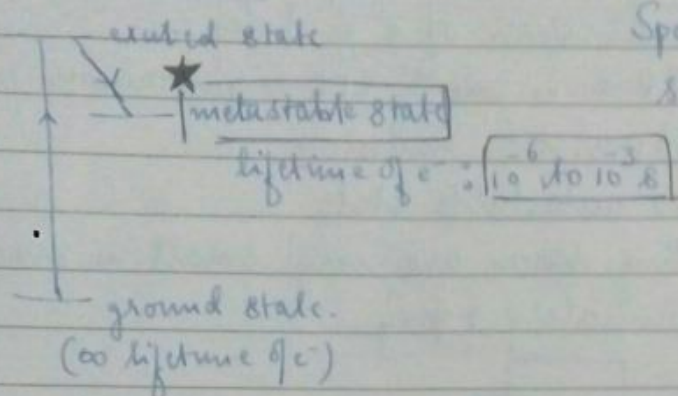 excited state
Sp
metastable state
lifetime of e⁻ : 10⁻⁶ to 10⁻³ s
ground state.
(∞ lifetime of e⁻)